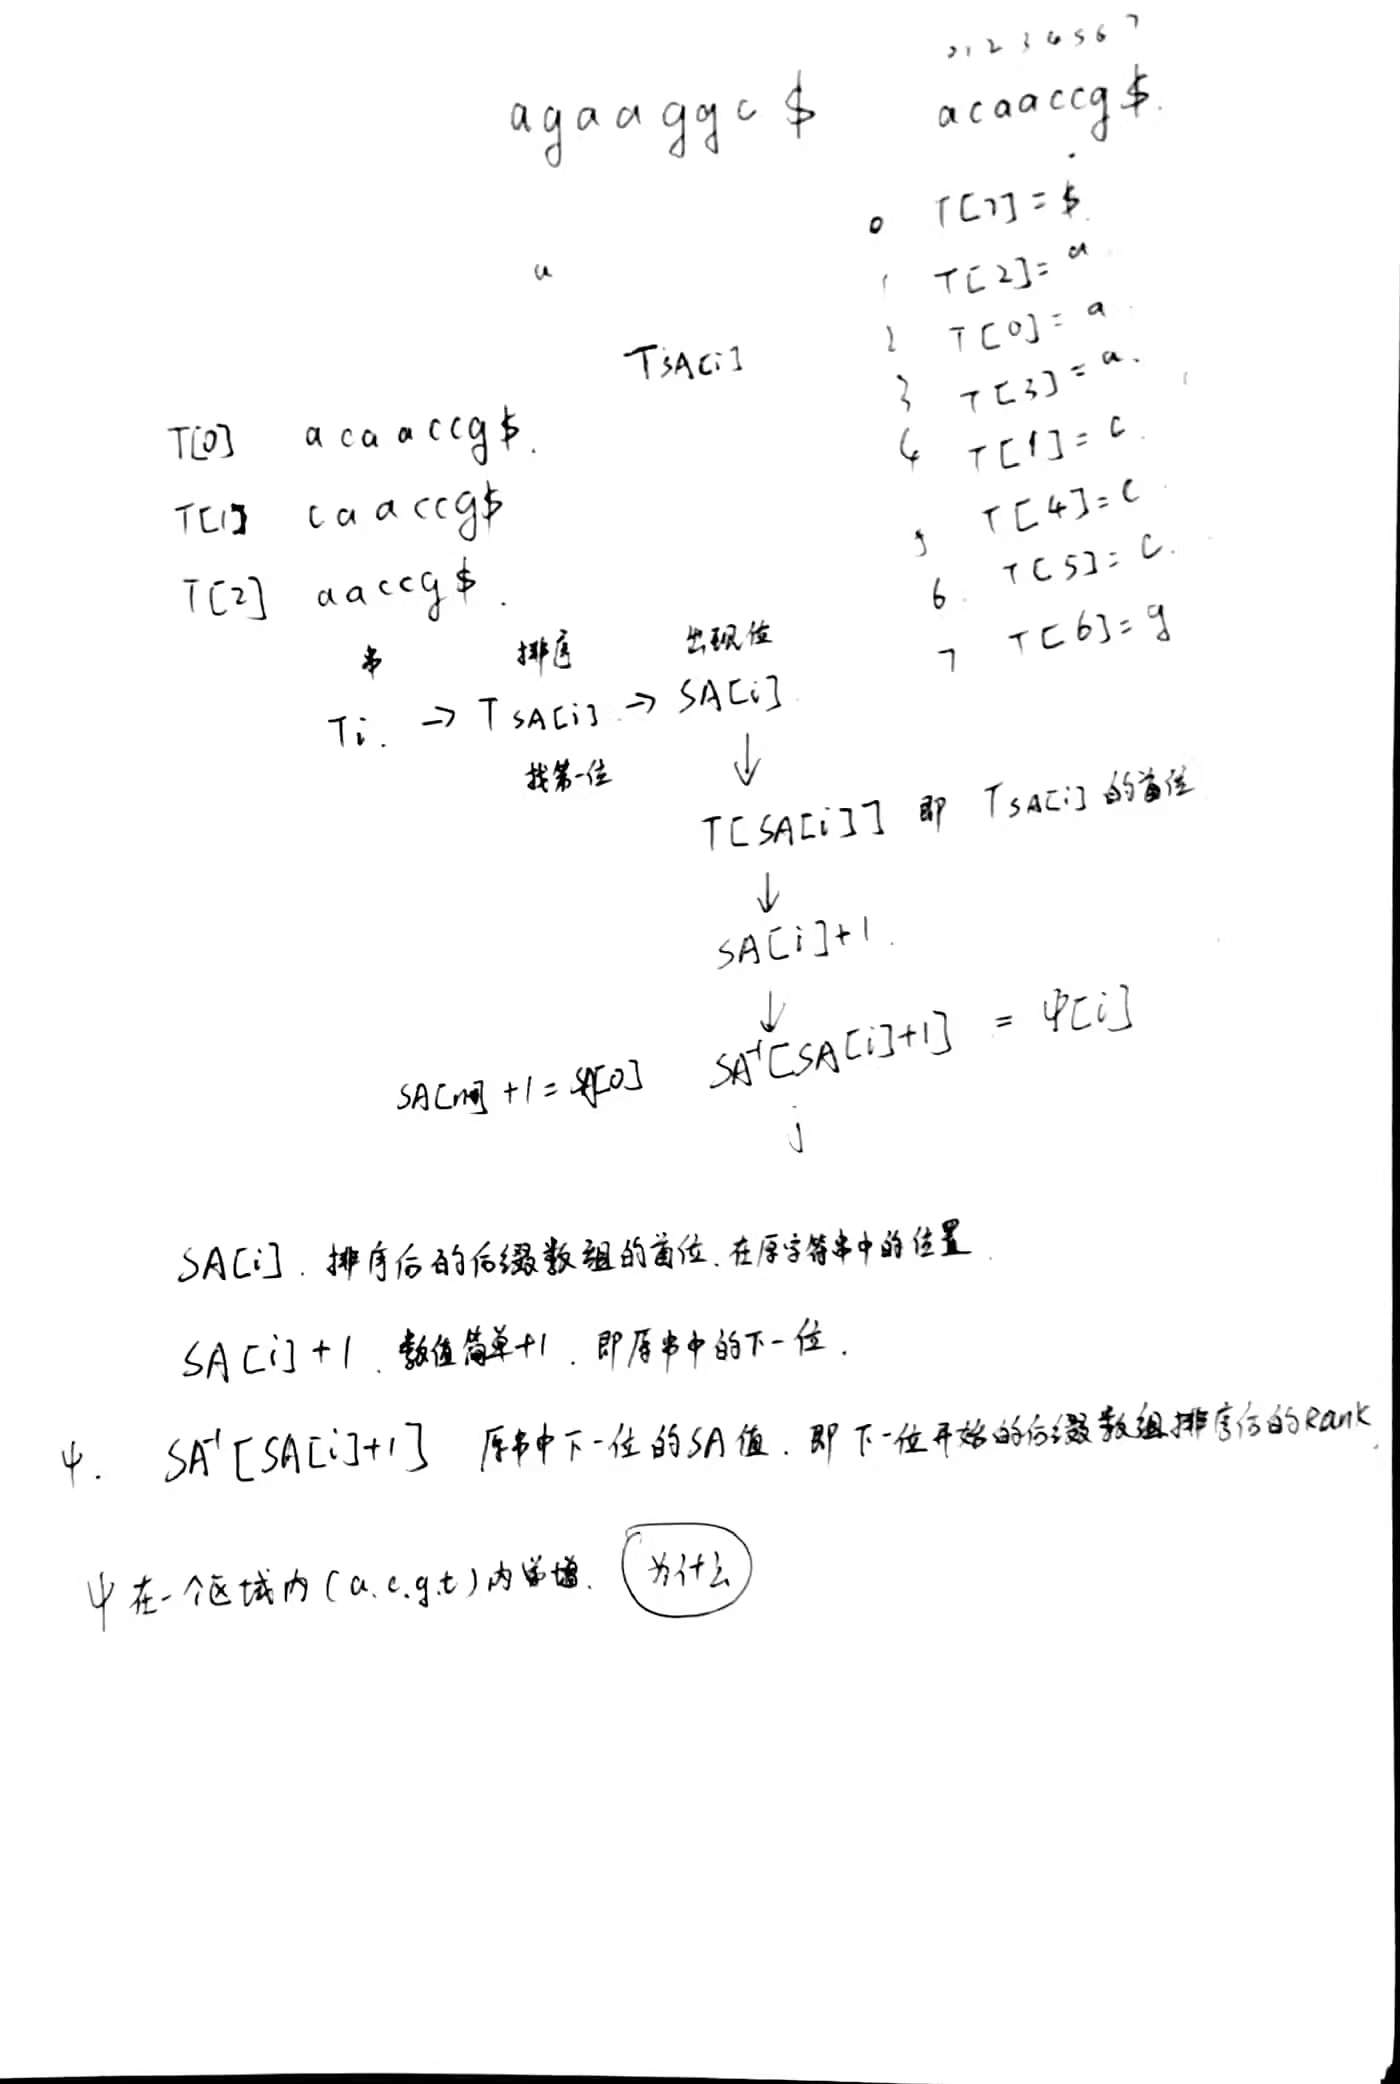 0 1 2 3 4 5 6 7
agaaggc$ acaaccg$.
0 T[7]=$.
a
1 T[2]=a
2 T[0]=a
TSA[i]
3 T[3]=a.
T[0] acaaccg$.
4 T[1]=c.
T[1] caaccg$
5 T[4]=c
T[2] aaccg$.
6. T[5]=c.
7 T[6]=g
串 排序 出现位
Ti. → TSA[i] → SA[i]
找第一位
↓
T[SA[i]] 即 TSA[i] 的首位
↓
SA[i]+1.
↓
SA[n]+1=SA[0] SA⁻¹[SA[i]+1] = Ψ[i]
j
SA[i]. 排序后的后缀数组的首位.在原字符串中的位置.
SA[i]+1. 数值简单+1. 即原串中的下一位.
Ψ. SA⁻¹[SA[i]+1] 原串中下一位的SA值. 即下一位开始的后缀数组排序后的Rank.
Ψ在一个区域内(a.c.g.t)内单增. 为什么